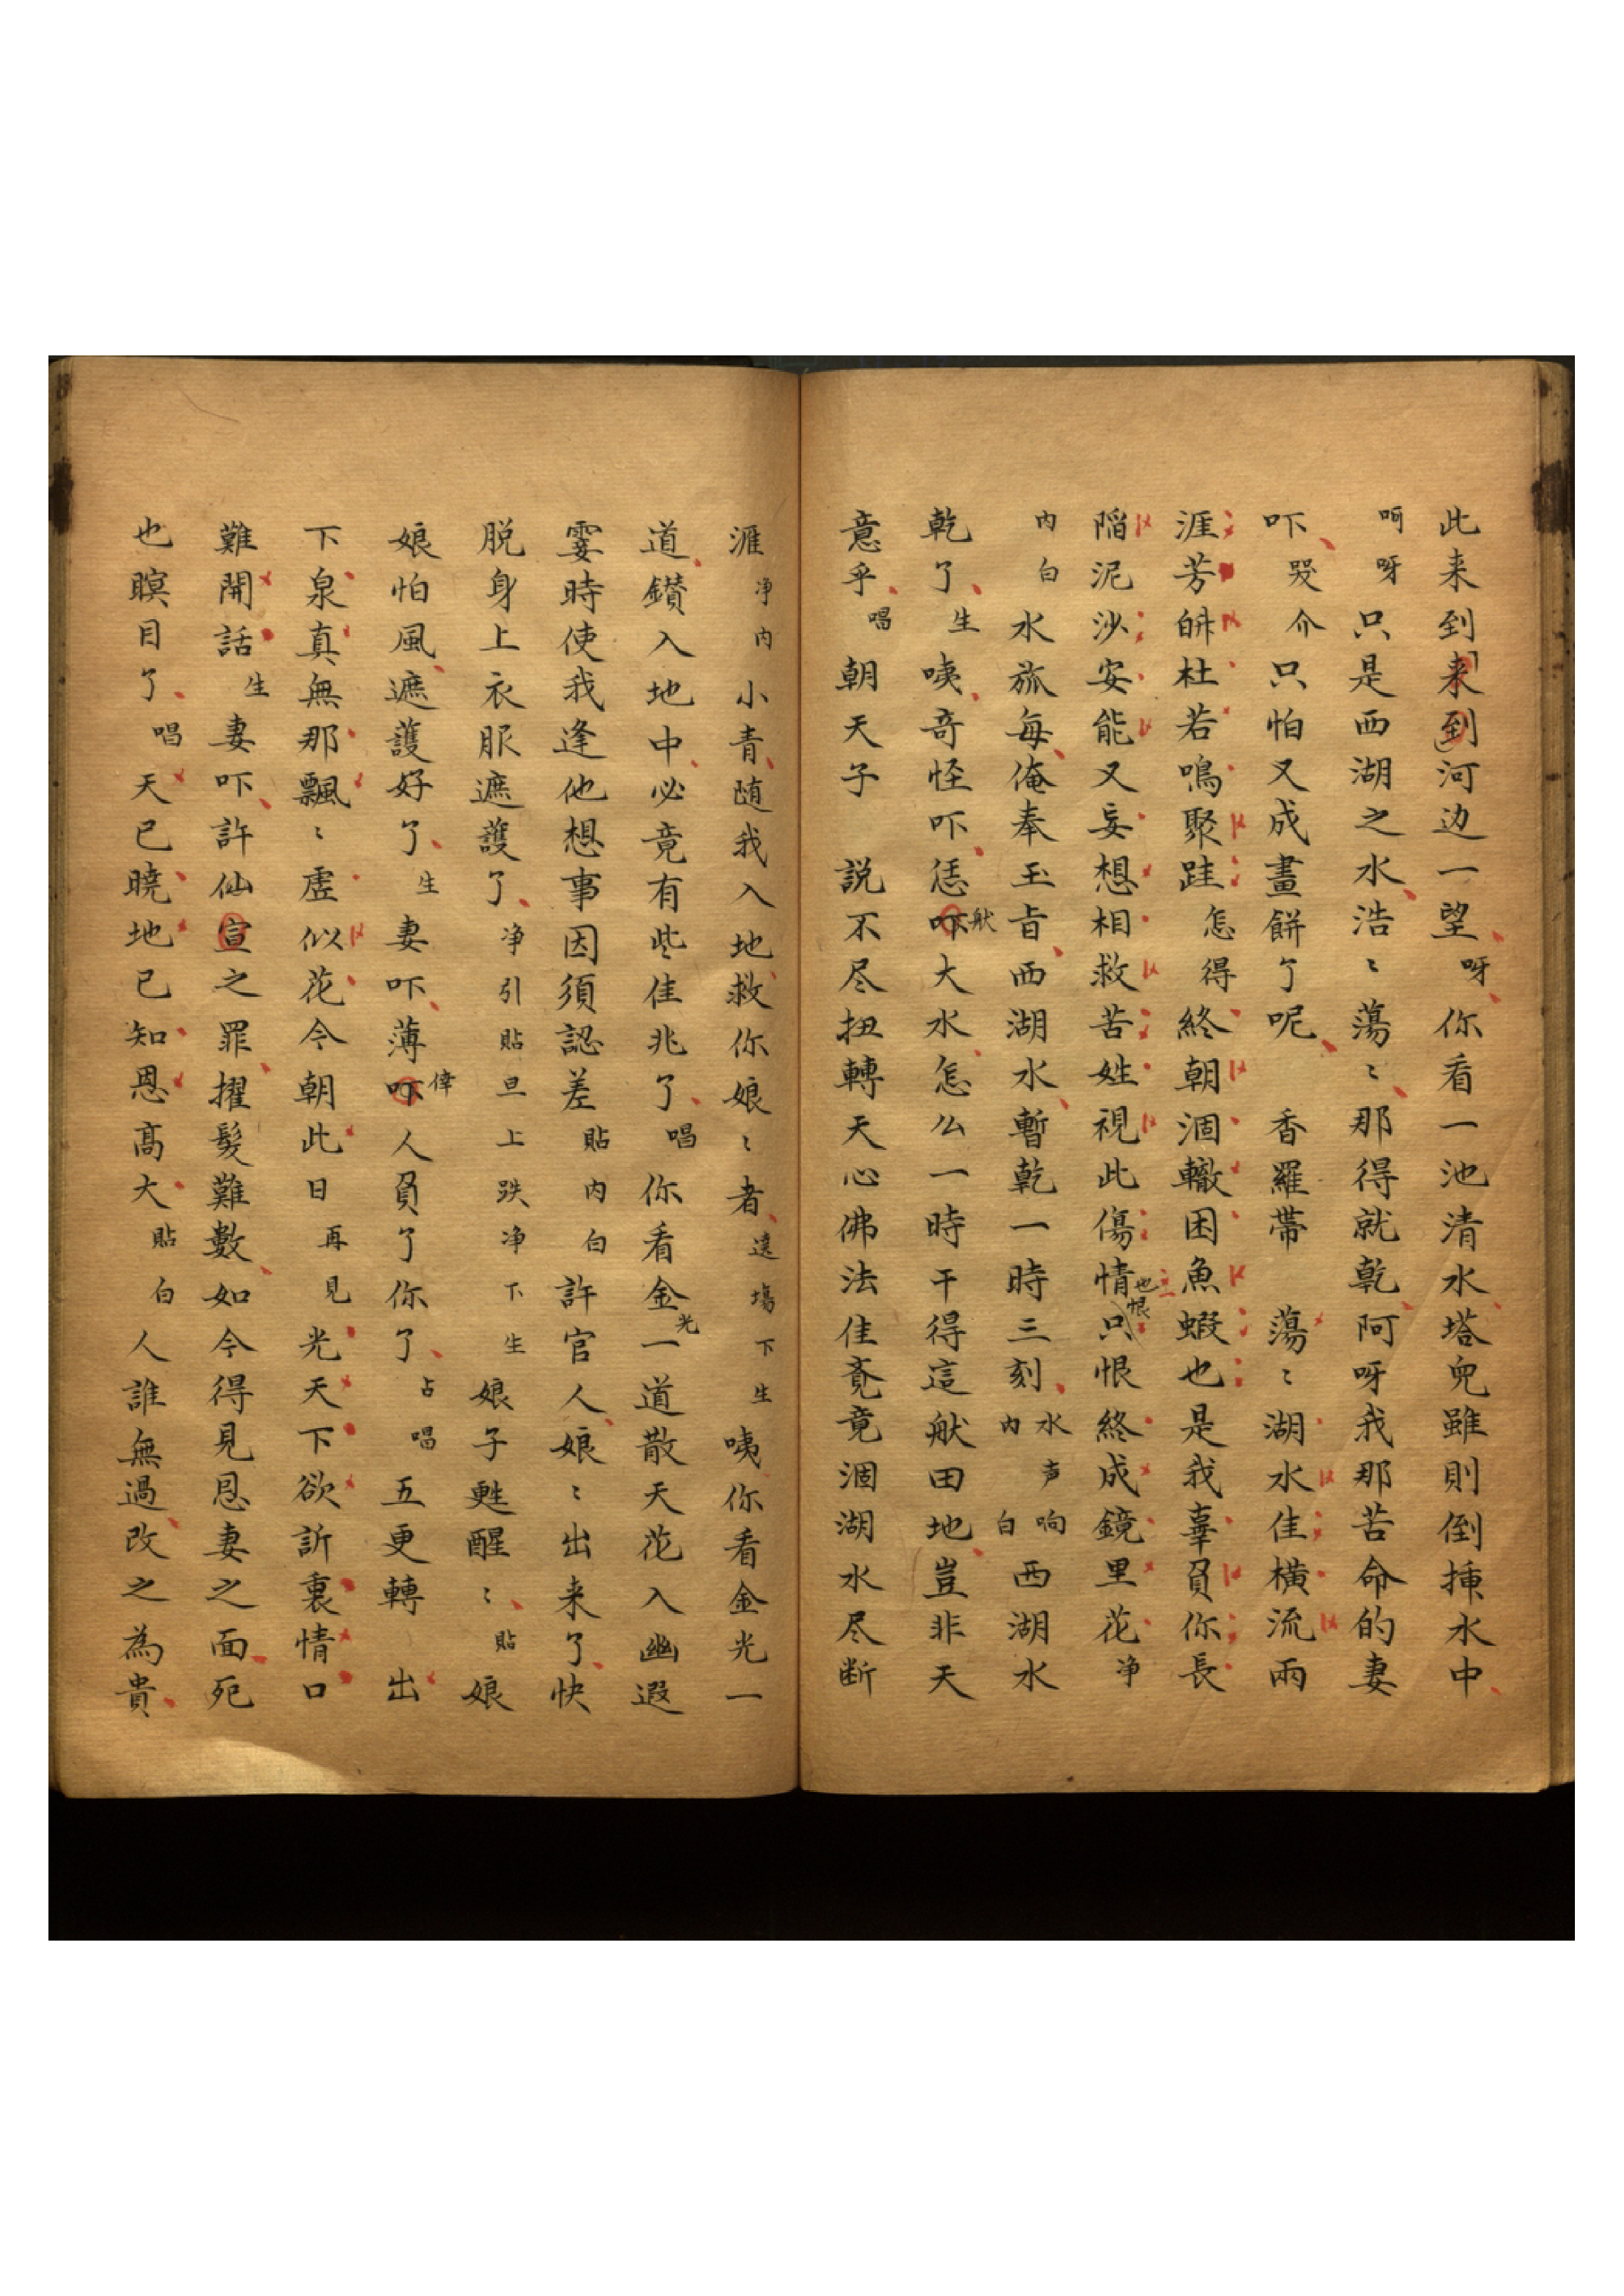 此来到来到河边一望呀你看一池清水塔兜雖則倒揷水中
呵呀只是西湖之水浩〻蕩〻那得就乾阿呀我那苦命的妻
吓哭介只怕又成畫餅了呢 香羅帶 蕩〻湖水佳橫流兩
涯芳皏杜若鳴聚跬怎得終朝涸轍困魚蝦也是我辜負你長
陷泥沙安能又妄想相救苦姓視此傷情也恨只恨終成鏡里花净
内白水族每俺奉玉旨西湖水暫乾一時三刻水声响内白西湖水
乾了生咦奇怪吓恁吓舩大水怎么一時干得這舩田地豈非天
意乎唱朝天子 説不尽扭轉天心佛法佳竟涸湖水尽断
涯净内小青随我入地救你娘〻者遶塲下生咦你看金光一
道鑚入地中必竟有些佳兆了唱你看金光一道散天花入幽遐
霎時使我逢他想事因須認差貼内白許官人娘〻出来了快
脱身上衣服遮護了净引貼旦上跌净下生娘子甦醒〻貼娘
娘怕風遮護好了生妻吓薄吓倖人負了你了占唱五更轉 出
下泉真無那飄〻虚似花今朝此日再見光天下欲訢裏情口
難開話生妻吓許仙宣之罪擢髮難數如今得見恩妻之面死
也瞑目了唱天已曉地已知恩高大貼白人誰無過改之為貴